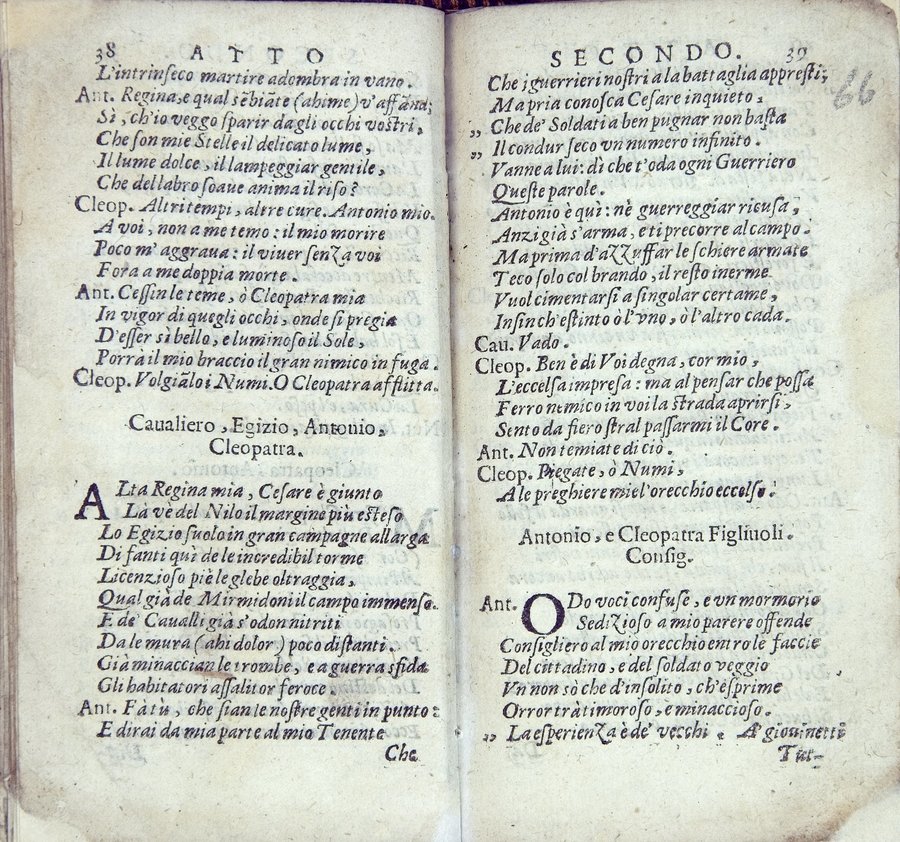 38 ATTO
L'intrinſeco martire adombra in vano.
Ant. Regina, e qual sẽbiãte (ahime) v'affãnd;
Sì, ch'io veggo ſparir dagli occhi voſtri,
Che ſon mie Stelle il delicato lume,
Il lume dolce, il lampeggiar gentile,
Che del labro ſoave anima il riſo?
Cleop. Altri tempi, altre cure. Antonio mio.
A voi, non a me temo: il mio morire
Poco m'aggraua: il viuer ſenza voi
Fora a me doppia morte.
Ant. Ceſſin le teme, ò Cleopatra mia
In vigor di quegli occhi, onde ſi pregia
D'eſſer sì bello, e luminoſo il Sole,
Porrà il mio braccio il gran nimico in fuga.
Cleop. Volgiãlo i Numi. O Cleopatra afflitta.
Caualiero, Egizio, Antonio,
Cleopatra.
ALta Regina mia, Ceſare è giunto
Là ve del Nilo il margine più eſteſo
Lo Egizio ſuolo in gran campagne allarga
Di fanti quì de le incredibil torme
Licenzioſo piè le glebe oltraggia,
Qual già de Mirmidoni il campo immenſo.
E de' Caualli già s'odon nitriti
Da le mura (ahi dolor) poco diſtanti.
Già minaccian le trombe, e a guerra sfida
Gli habitatori aſſalitor feroce.
Ant. Fà tù, che ſian le noſtre genti in punto:
E dirai da mia parte al mio Tenente
Che
SECONDO. 39
66
Che i guerrieri noſtri a la battaglia appreſti;
Ma pria conoſca Ceſare inquieto,
„ Che de' Soldati a ben pugnar non baſta
„ Il condur ſeco vn numero infinito.
Vanne a lui: dì che t'oda ogni Guerriero
Queſte parole.
Antonio è quì: nè guerreggiar ricuſa,
Anzi già s'arma, e ti precorre al campo.
Ma prima d'azzuffar le ſchiere armate
Teco ſolo col brando, il reſto inerme
Vuol cimentarſi a ſingolar certame,
Inſin ch'eſtinto ò l'vno, ò l'altro cada.
Cau. Vado.
Cleop. Ben è di Voi degna, cor mio,
L'eccelſa impreſa: ma al penſar che poſſa
Ferro nemico in voi la ſtrada aprirſi,
Sento da fiero ſtral paſſarmi il Core.
Ant. Non temiate di ciò.
Cleop. Piegate, ò Numi,
A le preghiere mie l'orecchio eccelſo.
Antonio, e Cleopatra Figliuoli.
Conſig.
Ant. ODo voci confuſe, e vn mormorio
Sedizioſo a mio parere offende
Conſigliero al mio orecchio entro le faccie
Del cittadino, e del ſoldato veggio
Vn non sò che d'inſolito, ch'eſprime
Orror trà timoroſo, e minaccioſo.
„ La eſperienza è de' vecchi. A' giouinetti
Tut-